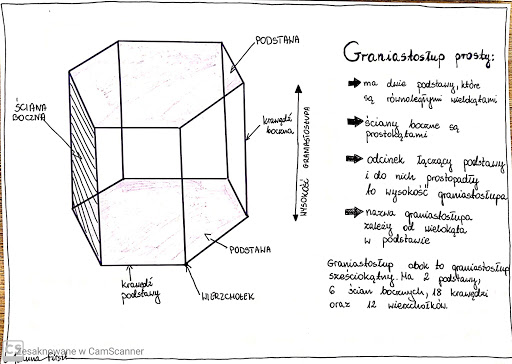 Graniastosłup prosty:
ma dwie podstawy, które
są równoległymi wielokątami
ściany boczne są
prostokątami
odcinek łączący podstawy
i do nich prostopadły
to wysokość graniastosłupa
nazwa graniastosłupa
zależy od wielokąta
w podstawie
Graniastosłup obok to graniastosłup
sześciokątny. Ma 2 podstawy,
6 ścian bocznych, 18 krawędzi
oraz 12 wierzchołków.
PODSTAWA
ŚCIANA
BOCZNA
krawędź
boczna
WYSOKOŚĆ GRANIASTOSŁUPA
PODSTAWA
krawędź
podstawy
WIERZCHOŁEK
CS Zeskanowane w CamScanner